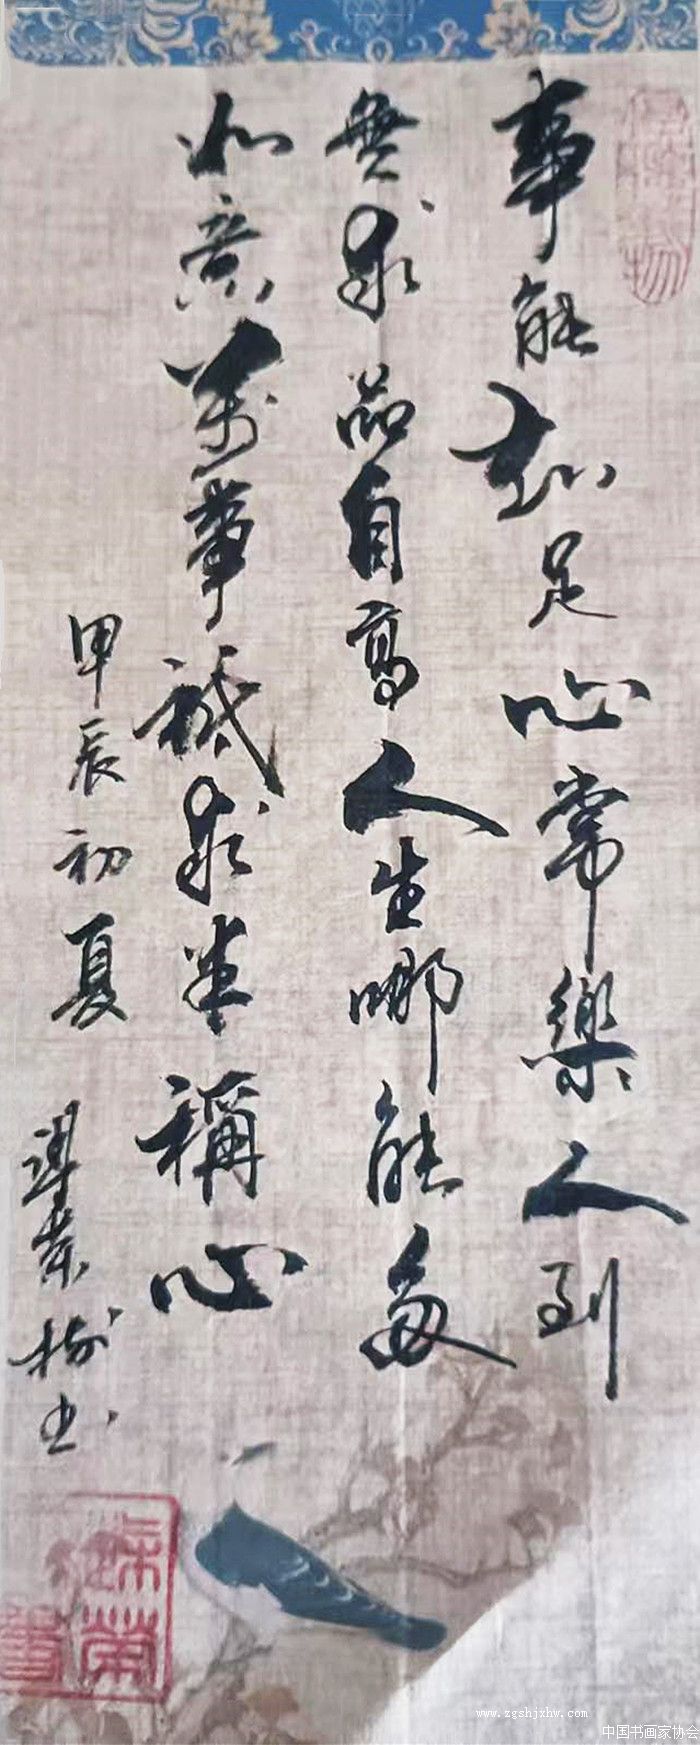 事能知足心常樂人到
無求品自高人生哪能多
如意萬事祗求半稱心
甲辰初夏
榮樹书
www.zgshjxhw.com
中国书画家协会